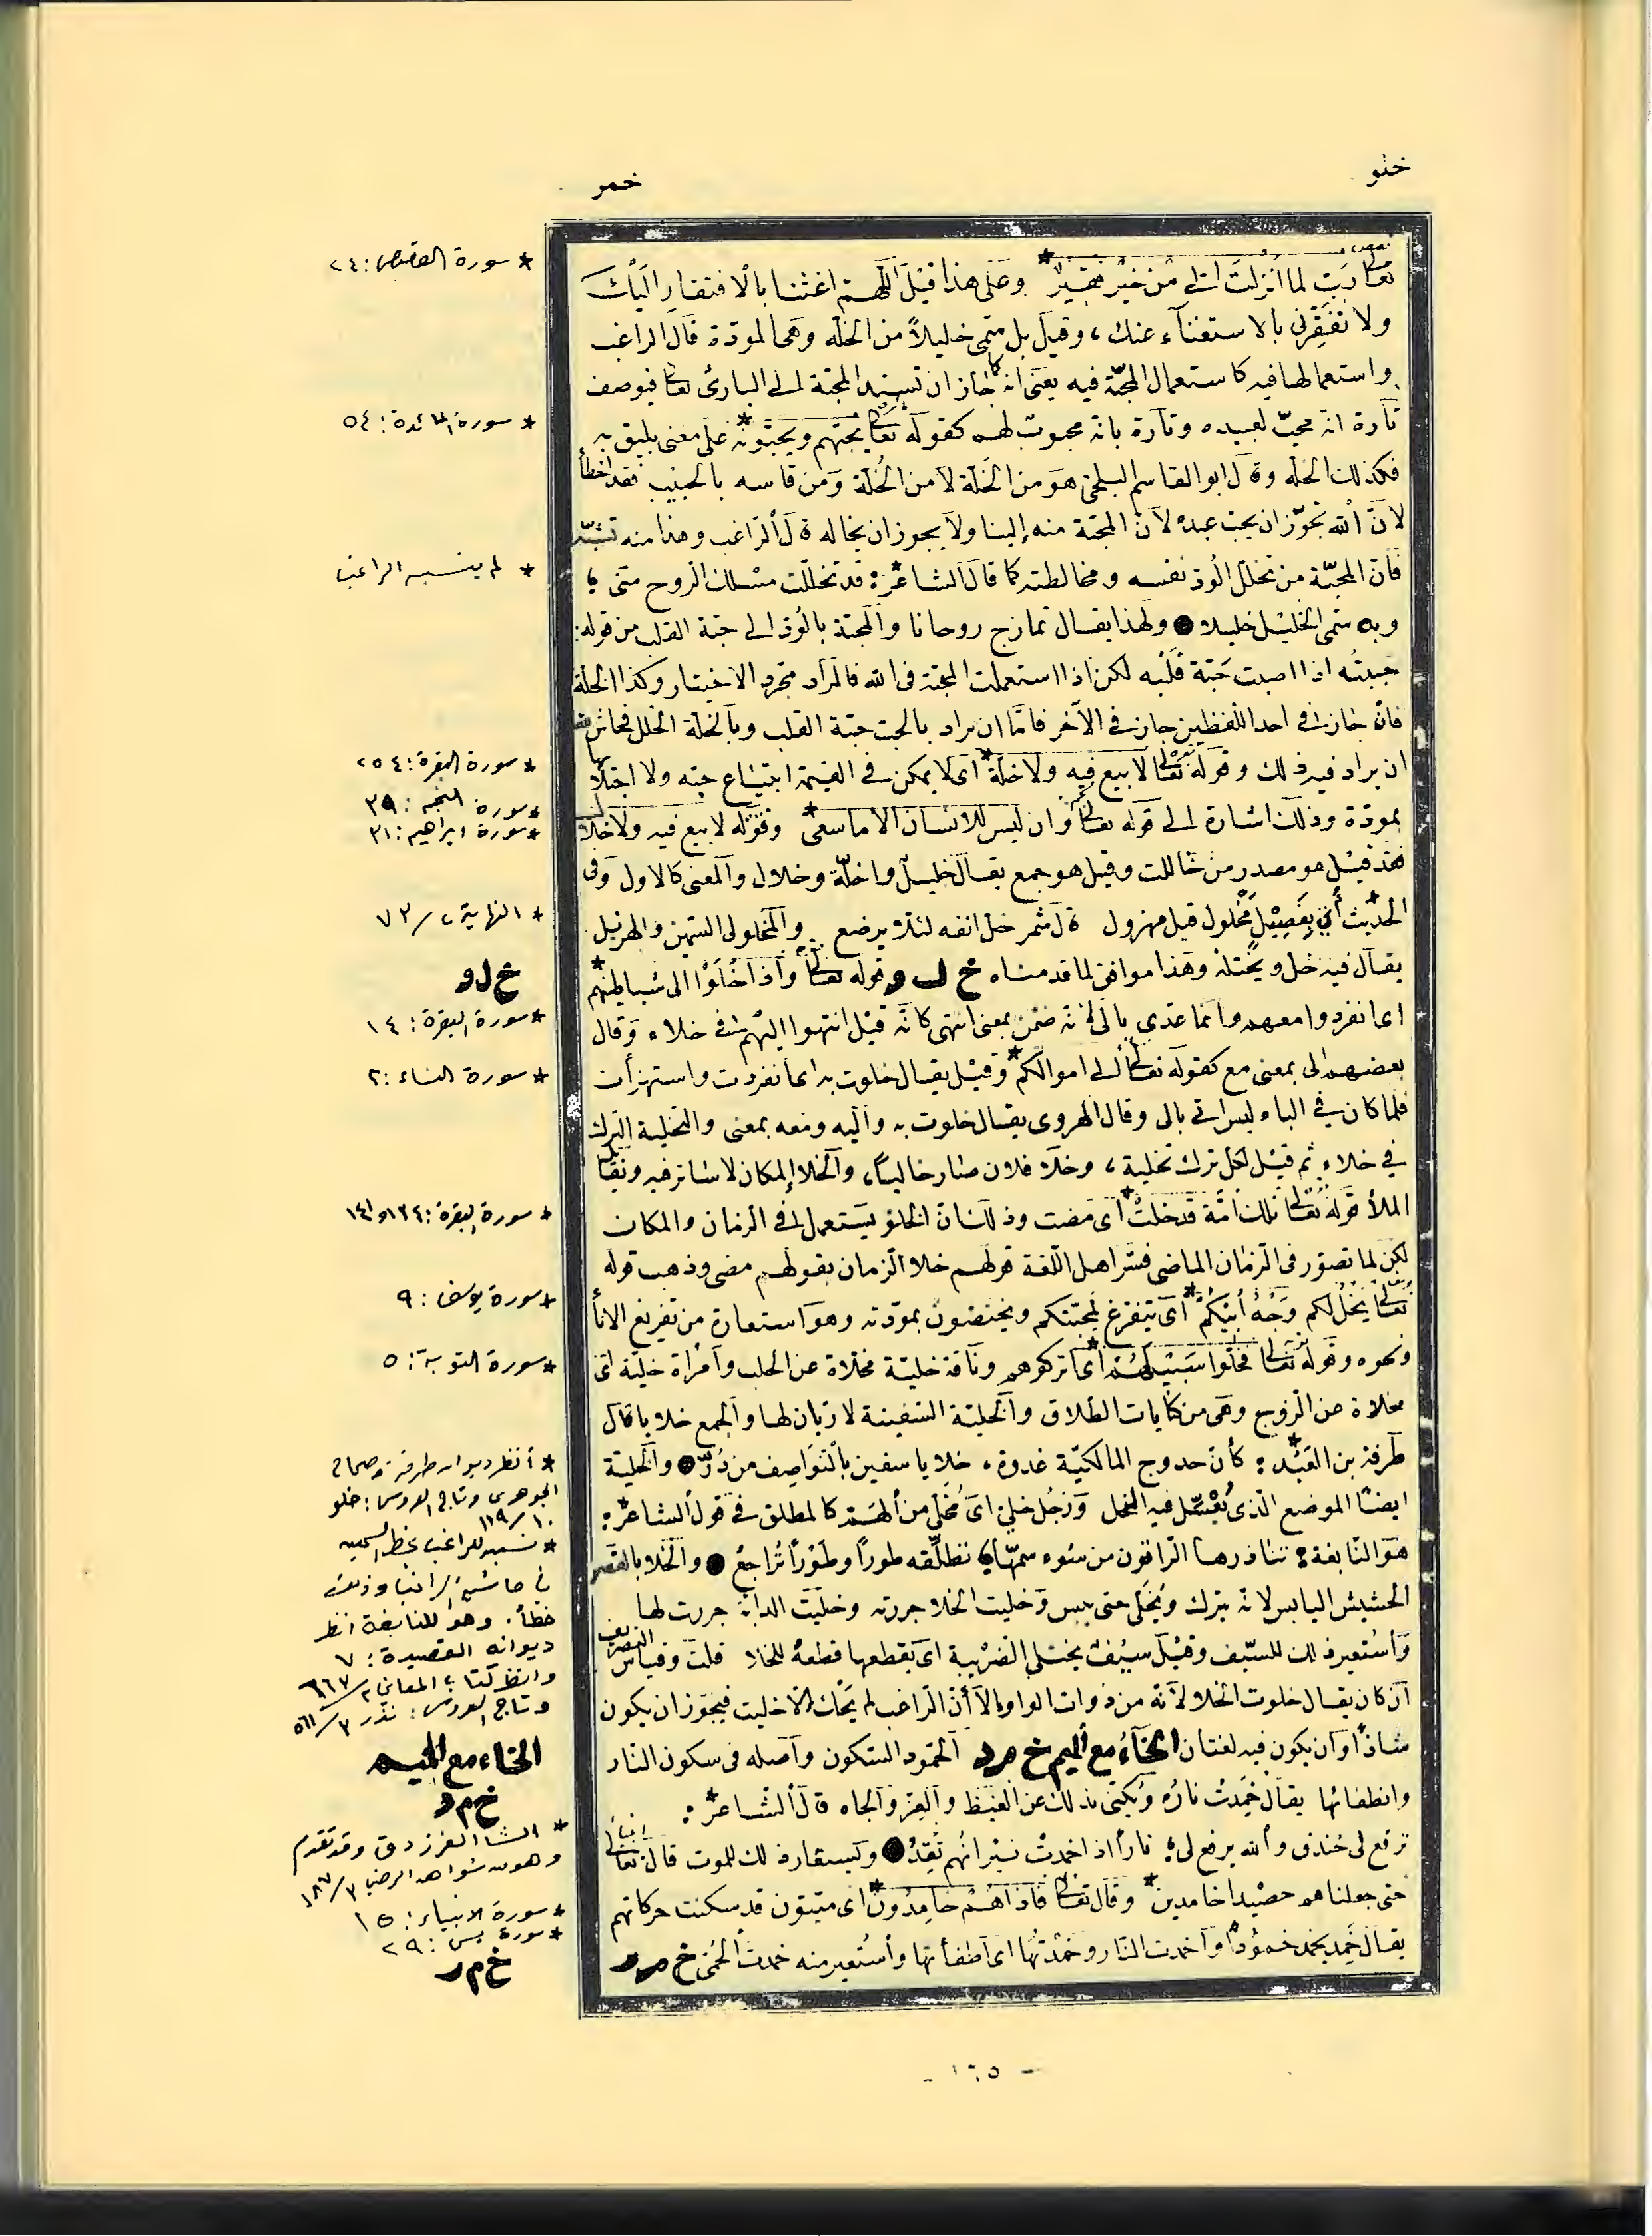 خلو
خمر
تعالى رب لما أنزلت إلي من خير فقير* وعلى هذا قيل اللهم اغننا بالافتقار إليك
ولا تفقرني بالاستغناء عنك، وقيل بل سمي خليلاً من الخلة وهي المودة قال الراغب
واستعمالها فيه كاستعمال المحبة فيه يعني انه كما جاز ان تسند المحبة إلى البارئ تعالى فيوصف
تارة انه محب لعبيده وتارة بانه محبوب لهم كقوله تعالى يحبهم ويحبونه* على معنى يليق به
فكذلك الخلة وقال ابو القاسم البلخي هو من الخلة لا من الخلة ومن قاسه بالحبيب فقد اخطأ
لان الله يجوز ان يحب عبده لان المحبة منه إلينا ولا يجوز ان يخاله قال الراغب وهذا منه تشبه
فان المحبة من تخلل الود نفسه ومخالطته كما قال الشاعر*: قد تخللت مسلك الروح مني؛
وبه سمي الخليل خليلا ● ولهذا يقال تمازج روحانا والمحبة بالود الى حبة القلب من قوله:
حببته اذا اصبت حبة قلبه لكن اذا استعملت المحبة في الله فالمراد مجرد الاختيار وكذا الخلة
فان جاز في احد اللفظين جاز في الآخر فاما ان يراد بالحب حبة القلب وبالخلة الخلل فحاش لله
ان يراد فيه ذلك وقوله تعالى لا بيع فيه ولا خلة* اى لا يمكن في القيمة ابتياع حبه ولا اجتلابها
بمودة وذلك اشارة الى قوله تعالى وان ليس للانسان الا ما سعى* وقوله لا بيع فيه ولا خلال
فقد قيل هو مصدر من خاللت وقيل هو جمع يقال خليل واخلة وخلال والمعنى كالاول وفى
الحديث* أتي بفصيل مخلول قيل مهزول قال شمر خل انفه لئلا يرضع والمخلول السمين والهزيل
يقال فيه خل ويختل وهذا موافق لما قدمناه خ ل و قوله تعالى واذا خلوا الى شياطينهم*
اى انفردوا معهم وانما عدي بالى لانه ضمن بمعنى انتهى كانه قيل انتهوا اليهم في خلاء وقال
بعضهم الى بمعنى مع كقوله تعالى الى اموالكم* وقيل يقال خلوت به اى انفردت واستهزأت
فلما كان في الباء لبس اتي بالى وقال الهروي يقال خلوت به واليه ومعه بمعنى والتخلية الترك
في خلاء ثم قيل لكل ترك تخلية، وخلا فلان صار خاليا، والخلا المكان لا ساتر فيه
الملأ قوله تعالى تلك امة قد خلت* اى مضت وذلك ان الخلو يستعمل في الزمان والمكان
لكن لما تصور في الزمان الماضي فسر اهل اللغة قولهم خلا الزمان بقولهم مضى وذهب قوله
تعالى يخل لكم وجه أبيكم* اى يتفرغ لمحبتكم ويختصون بمودته وهو استعارة من تفريغ الانأ
ونحوه وقوله تعالى فخلوا سبيلهم* اى اتركوهم وناقة خلية مخلاة عن الحلب وامرأة خلية اى
مخلاة عن الزوج وهي من كنايات الطلاق والخلية السفينة لا ربان لها والجمع خلايا قال
طرفة بن العبد*: كأن حدوج المالكية غدوة، خلايا سفين بالنواصف من دد ● والخلية
ايضًا الموضع الذي يعسل فيه النحل ورجل خلي اى مخلى من الهم كالمطلق في قول الشاعر*:
هو النابغة: تناذرها الراقون من سوء سمها؛ تطلقه طوراً وطوراً تراجع ● والخلا بالقصر
الحشيش اليابس لانه يترك ويخلى حتى يبس وخليت الخلا جززته وخليت الدابة جززت لها
واستعير ذلك للسيف وقيل سيف يختلي الضريبة اى يقطعها قطعه للخلا قلت وقياس التصريف
ان كان يقال خلوت الخلا لانه من ذوات الواو إلا أن الراغب لم يحك إلا خليت فيجوز ان يكون
شاذا او ان يكون فيه لغتان الخاء مع الميم خ م د الخمود السكون واصله في سكون النار
وانطفائها يقال خمدت ناره ويكنى بذلك عن الغيظ والعز والجاه قال الشاعر*:
ترفع لى خندف والله يرفع لى؛ نارا اذا خمدت نيرانهم تقد ● ويستعار ذلك للموت قال تعالى
حتى جعلناهم حصيدا خامدين* وقال تعالى فاذا هم خامدون* اى ميتون قد سكنت حركاتهم
يقال خمد يخمد خمودا واخمدت النار وخمدتها اى اطفأتها واستعير منه خمدت الحمى خ م ر
* سورة القصص: ٢٤
* سورة المائدة: ٥٤
* لم ينسبه الراغب
* سورة البقرة: ٢٥٤
* سورة النجم: ٣٩
* سورة ابراهيم: ٣١
* النهاية ٢/٧٣
خ ل و
* سورة البقرة: ١٤
* سورة النساء: ٢
* سورة البقرة: ١٣٤ و ١٤١
* سورة يوسف: ٩
* سورة التوبة: ٥
* أنظر ديوان طرفة وصحاح
الجوهري وتاج العروس: خلو
١٠/١١٩
* نسبه للراغب بخط السمين
في حاشية
خطأ. وهو للنابغة انظر
ديوانه القصيدة: ٧
وانظر كتاب المعاني ٢/٦٦٧
وتاج العروس: نذر ٣/٥٦١
الخاء مع الميم
خ م د
* الشاعر الفرزدق وقد تقدم
وهو من شواهد الرضي ٣/١٨٧
* سورة الانبياء: ١٥
* سورة يس: ٢٩
خ م ر
- ١٦٥ -